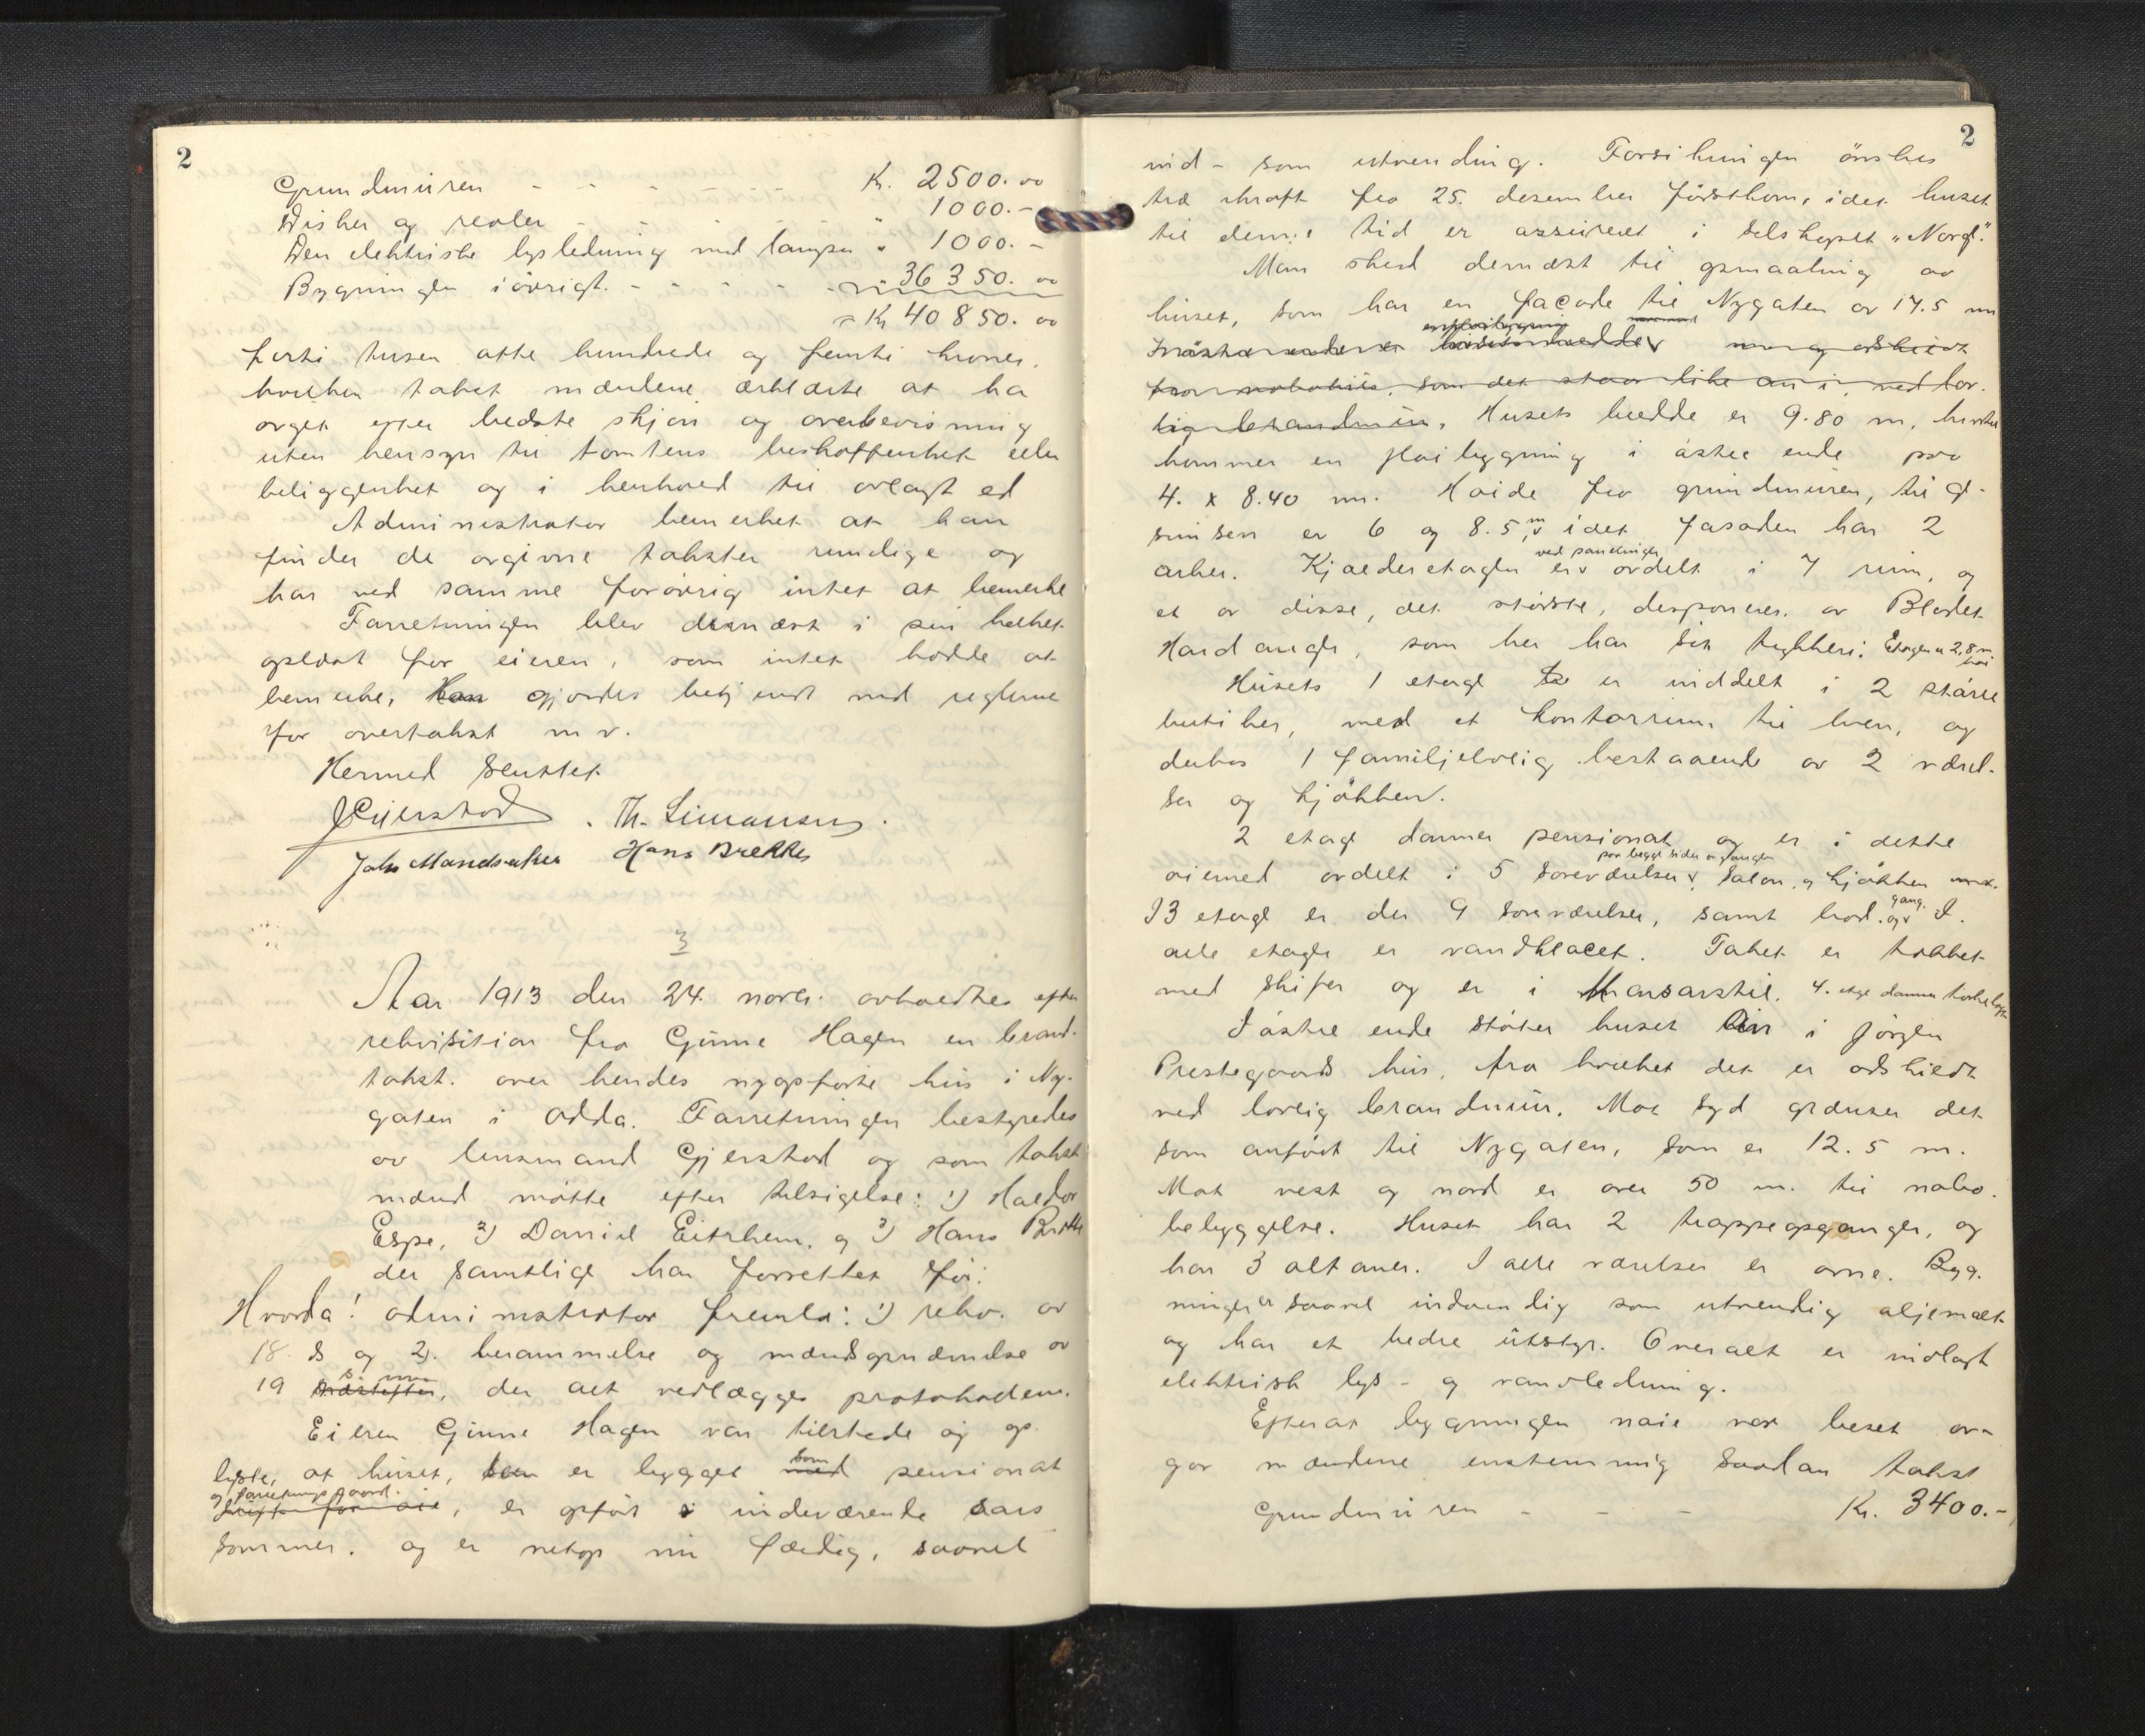 2
Grundmuren - - - - Kr. 2500.00
Disker og reoler - - - - - " 1000.-
Den elektriske lysledning med lamper " 1000.-
Bygningen iövrigt. - - - - - " 36350.00
= Kr 40850.00
forti tusen otte hundrede og femti kroner,
hvilken takst mændene erklærte at ha
avgit efter bedste skjön og overbevisning
uten hensyn til tomtens beskaffenhet eller
beliggenhet og i henhold til avlagt ed
Administrator bemerket at han
finder de avgivne takster rimelige og
har ved samme forövrig intet at bemerke
Forretningen blev dernæst i sin helhet
oplæst for eieren, som intet hadde at
bemerke, Han gjordes bekjendt med reglerne
for overtakst m v.
Hermed sluttet
JGjerstad . Th. Simonsen.
Joh. Mandsaker Hans Brekke
3
Aar 1913 den 24. novbr. avholdtes efter
rekvisition fra Gunne Hagen en brand-
takst. over hendes nyopförte hus i Ny-
gaten i Odda. Forretningen bestyredes
av lensmand Gjerstad og som takst
mænd mötte efter tilsigelse: 1) Haldor
Espe, 2) Daniel Eitrheim, og 3) Hans Brekke
der samtlige har forrettet för.
Hvorda! administrator fremla: 1) rekv. av
18. ds og 2). berammelse og mændsopnævnelse av
s. mn.
19 næstefter, der alt vedlægges protokollen.
Eieren Gunne Hagen var tilstede og op-
lyste, at huset, som er bygget med som pensionat
og forretningsgaard.
, er opfört i indeværende aars
sommer. og er netop nu færdig, saavel
2
ind- som utvendig. Forsikringen önskes
træ ikraft fra 25. desember förstkom. idet huset
til denne tid er assureret i selskapet "Norge".
Man skred dernæst til opmaaling av
huset, som har en facade til Nygaten av 17.5 m
fra nabohus, som det staar like an i, ved lov-
lig brandmur. Husets bredde er 9.80 m, hvortil
kommer en tilbygning i östre ende paa
4. x 8.40 m. Höide fra grundmuren, til ge-
simsen er 6 og 8.5 m, idet fasaden har 2
arker. Kjælderetagen er ved panelinger avdelt i 7 rum, og
et av disse, det störste, desponeres av Bladet
Hardanger, som her har sit trykkeri. Etagen er 2,8 m höi
Husets 1 etage er inddelt i 2 större
butiker, med et kontorrum til hver, og
derhos 1 familjebolig bestaaende av 2 værel-
ser og kjökken.
2 etage danner pensionat og er i dette
öiemed avdelt i 5 soveværelser paa begge sider av gangen, salon, og kjökken
I 3 etage er der 9 soveværelser, samt bod. og gang. I
alle etager er vandklocet. Taket er tækket
med skifer og er i Mansarstil. 4. etage danner törkeloft
I östre ende stöter huset ind i Jörgen
Prestegaards hus, fra hvilket det er adskildt
ved lovlig brandmur. Mot syd grænser det
som anfört til Nygaten, som er 12.5 m.
Mot vest og nord er over 50 m. til nabo-
bebyggelse. Huset har 2 trappeopganger, og
har 3 altaner. I alle værelser er ovne. Byg-
ningen er saavel indvendig som utvendig oljemalt
og har et bedre utstyr. Overalt er indlagt
elektrisk lys- og vandledning.
Efterat bygningen nöie var beset av-
gav mændene enstemmig saadan takst
Grundmuren - - - Kr. 3400.-